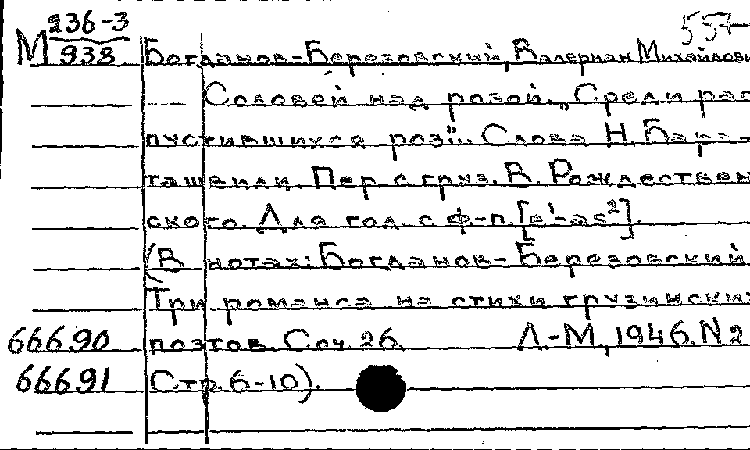 236-3 557-
М 938 Богданов-Березовский, Валериан Михайлови
Соловей над розой. „Среди рас
пустившихся роз". Слова Н. Бара-
ташвили. Пер. с груз. В. Рождествен
ского. Для гол. с ф-п. [e¹-as²].
(В нотах: Богданов-Березовский
Три романса на стихи грузински
66690 поэтов. Соч. 26. Л.-М., 1946. N 2
66691 Стр. 6-10).